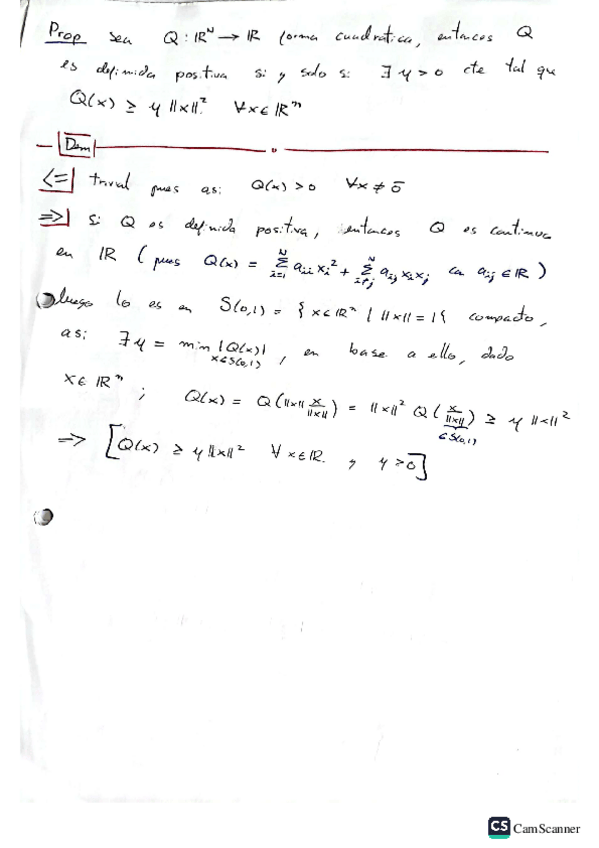 Prop Sea Q : ℝᴺ → ℝ forma cuadrática, entonces Q
es definida positiva si y solo si ∃ γ > 0 cte tal que
Q(x) ≥ γ ||x||² ∀x ∈ ℝⁿ
Dem
<=| trivial pues así Q(x) > 0 ∀x ≠ 0̄
=>| Si Q es definida positiva, entonces Q es continua
en ℝ (pues Q(x) = Σᵢ₌₁ᴺ aᵢᵢ xᵢ² + Σᵢ≠ⱼᴺ aᵢⱼ xᵢ xⱼ con aᵢⱼ ∈ ℝ)
luego lo es en S(0,1) = { x ∈ ℝⁿ / ||x|| = 1 { compacto,
así ∃ γ = min |Q(x)| x∈S(0,1) , en base a ello, dado
x ∈ ℝⁿ ; Q(x) = Q(||x|| x/||x||) = ||x||² Q(x/||x||) ≥ γ ||x||²
∈ S(0,1)
=> [Q(x) ≥ γ ||x||² ∀x ∈ ℝ. y γ > 0]
CS CamScanner